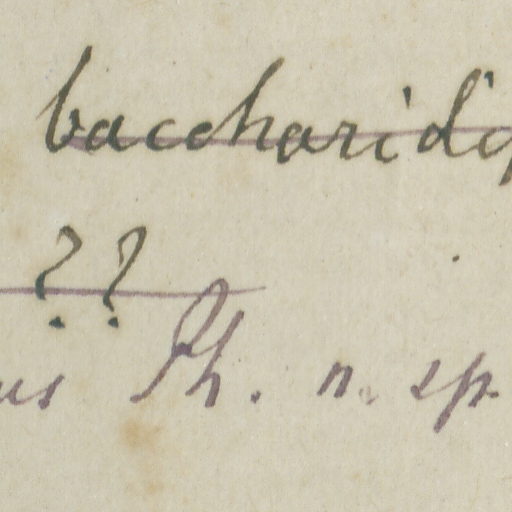 baccharidi
??
us Ph. n. sp.